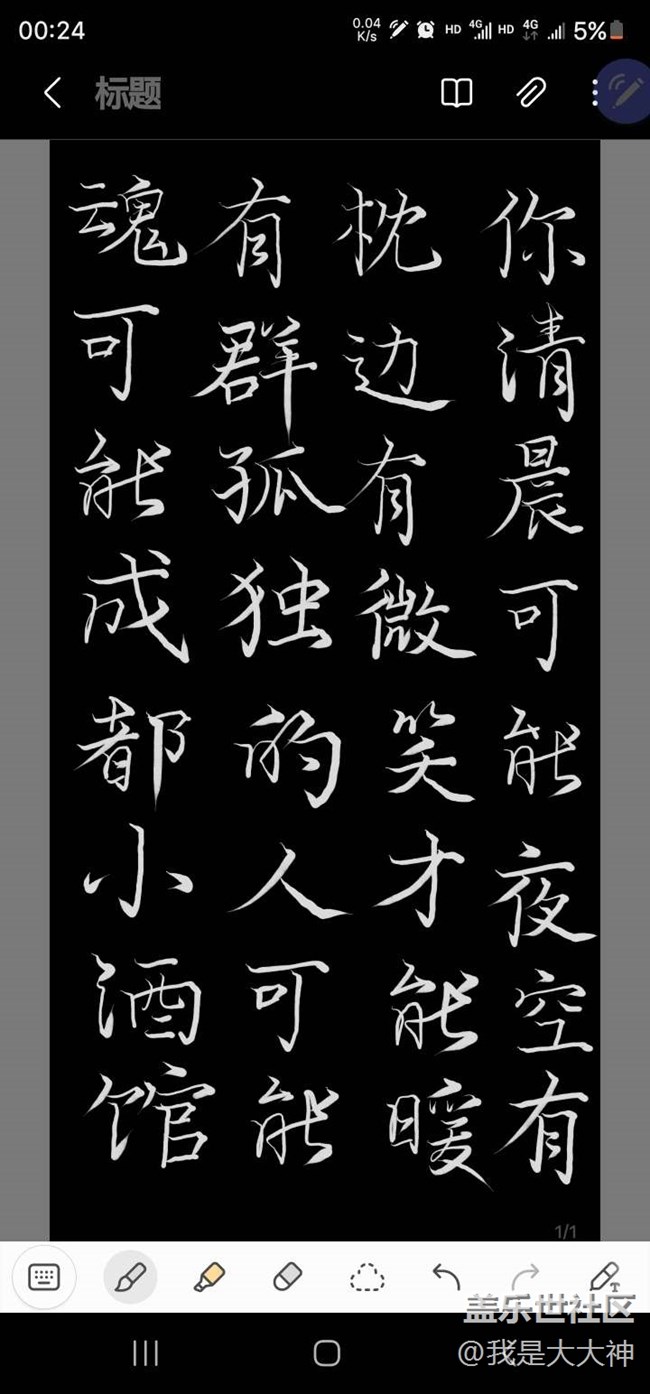 00:24
0.04 K/s HD 4G HD 4G 5%
标题
你清晨可能夜空有
枕边有微笑才能暖
有群孤独的人可能
魂可能成都小酒馆
1/1
T
盖乐世社区
@我是大大神